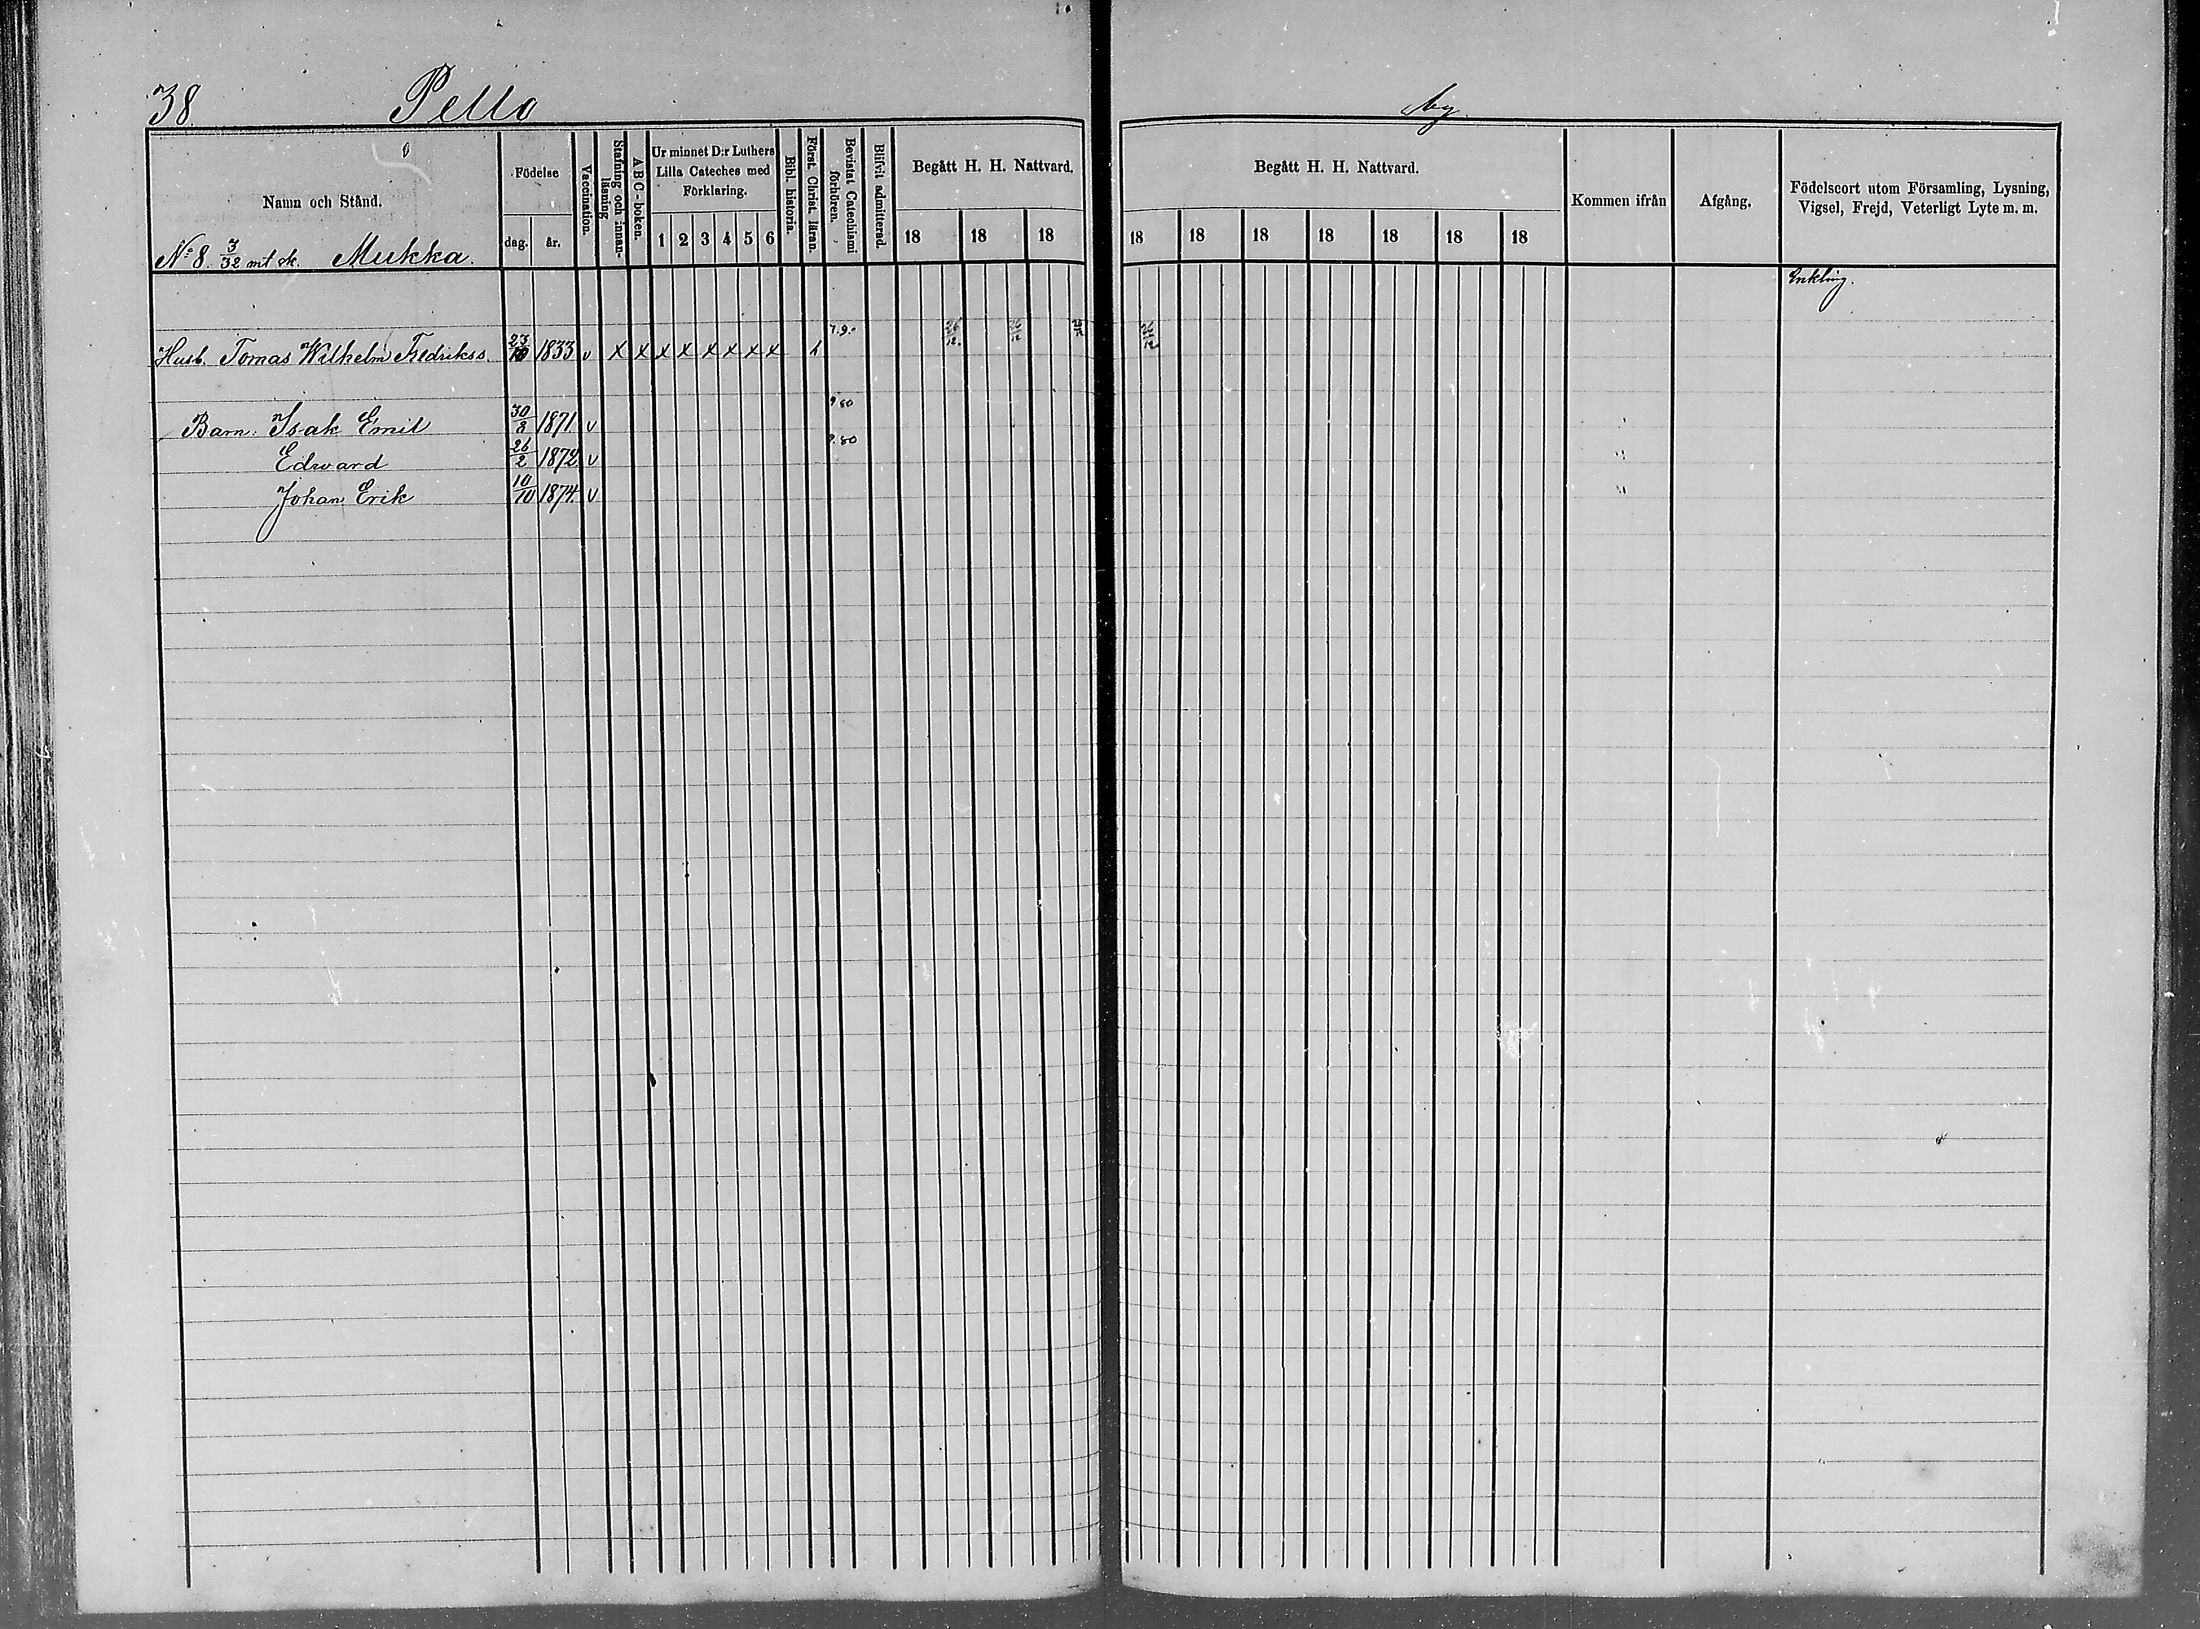 38.
Pello
by.
Namn och Stånd.
No 8. 3/32 mt sk. Mukka.
Födelse
dag. år.
Vaccination.
Stafning och innan-läsning
ABC-boken.
Ur minnet D:r Luthers
Lilla Cateches med
Förklaring.
1 2 3 4 5 6
Bibl. historia.
Först. Christ. läran.
Bevistat Catechismi förhören.
Blifvit admitterad.
Begått H. H. Nattvard.
18 18 18
Begått H. H. Nattvard.
18 18 18 18 18 18 18
Kommen ifrån
Afgång.
Födelseort utom Församling, Lysning,
Vigsel, Frejd, Veterligt Lyte m. m.
Enkling.
Husb. Tomas Wilhelm Fredrikss. 23/10 1833 v x x x x x x x x h 7.9. 26/12
Barn. Isak Emil 30/3 1871 v 9 80
Edward 26/2 1872 v 9.80
Johan Erik 10/10 1874 v